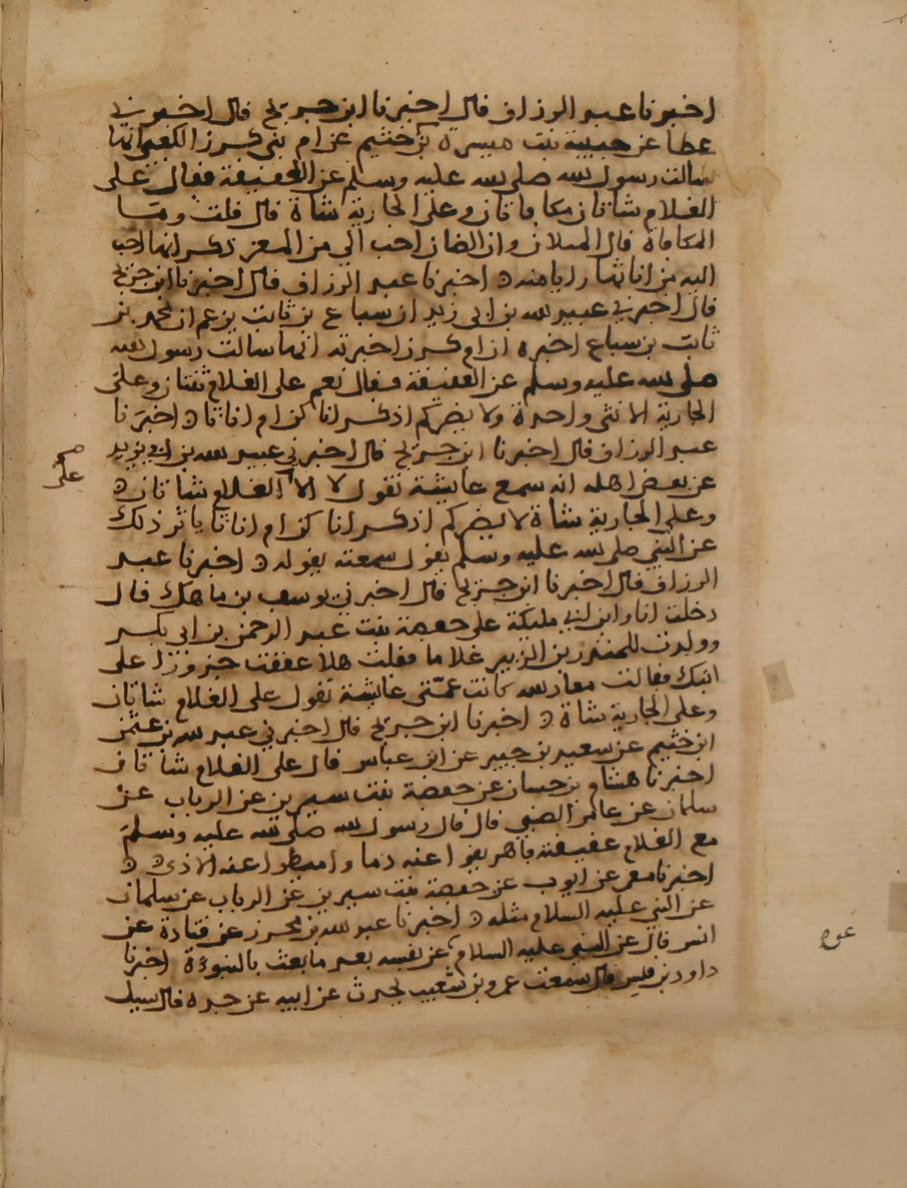 اخبرنا عبد الرزاق قال اخبرنا ابن جريج قال اخبرني
عطا عن حبيبة بنت ميسره بن خثيم عن ام بني كرز الكعبي انها
سالت رسول الله صلى الله عليه وسلم عن العقيقة فقال على
الغلام شاتان مكافاتان وعلى الجارية شاة قال قلت وما
المكافاة قال المثلان وان الضان احب الي من المعز ذكرانها احب
اليه من اناثها رايا منه اخبرنا عبد الرزاق قال اخبرنا ابن جريج
قال اخبرني عبيد الله بن ابي زيد ان سباع بن ثابت يزعم ان محمد بن
ثابت بن سباع اخبره ان ام كرز اخبرته انها سالت رسول الله
صلى الله عليه وسلم عن العقيقة فقال نعم على الغلام ثنتان وعلى
الجارية الانثى واحدة ولا يضركم اذكرانا كن ام اناثا اخبرنا
عبد الرزاق قال اخبرنا ابن جريج قال اخبرني عبيد الله بن ابي يزيد
عن بعض اهله انه سمع عايشة تقول لا الا الغلام شاتان
وعلى الجارية شاة لا يضركم اذكرانا كن ام اناثا ياثر ذلك
عن النبي صلى الله عليه وسلم يقول سمعته يقوله اخبرنا عبد
الرزاق قال اخبرنا ابن جريج قال اخبرني يوسف بن ماهك قال
دخلت انا وابن ابي مليكة على حفصة بنت عبد الرحمن بن ابي بكر
وولدت للمنذر بن الزبير غلاما فقلت هلا عققت جزورا على
ابنك فقالت معاذ الله كانت عمتي عايشة تقول على الغلام شاتان
وعلى الجارية شاة اخبرنا ابن جريج قال اخبرني عبد الله بن عثمن
ابن خثيم عن سعيد بن جبير عن ابن عباس قال على الغلام شاتان
اخبرنا هشام بن حسان عن حفصة بنت سيرين عن الرباب عن
سلمان عن عامر الضبي قال قال رسول الله صلى الله عليه وسلم
مع الغلام عقيقته فاهريقوا عنه دما واميطوا عنه الاذى
اخبرنا معمر عن ايوب عن حفصة بنت سيرين عن الرباب عن سلمان
عن النبي عليه السلام مثله اخبرنا عبد الله بن محرز عن قتادة عن
انس قال عق النبي عليه السلام عن نفسه بعد ما بعث بالنبوة اخبرنا
داود بن قيس قال سمعت عمرو بن شعيب يحدث عن ابيه عن جده قال سيل
صح
على